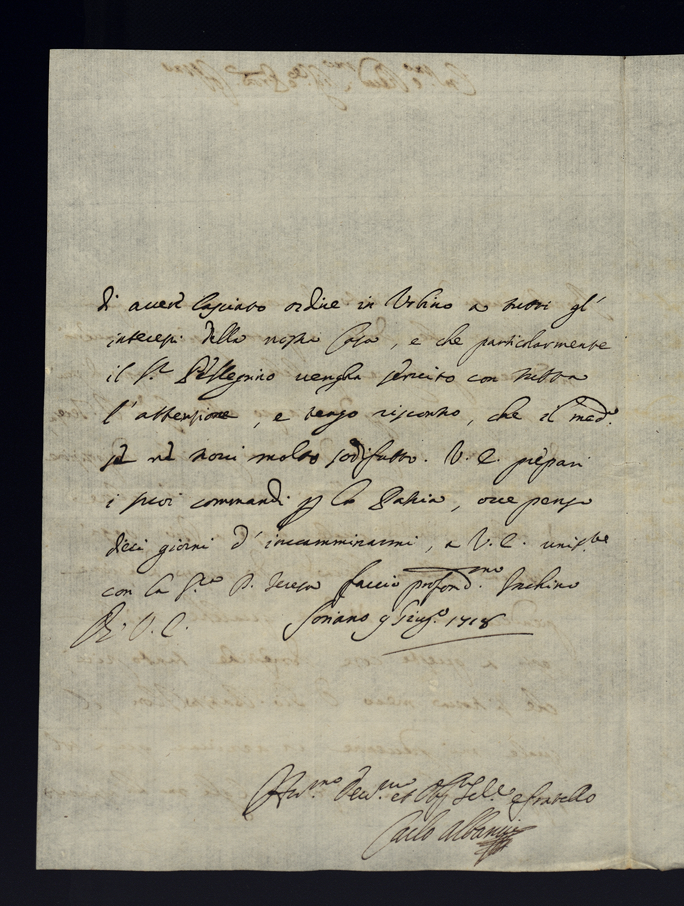 di aver lasciato ordine in Urbino a tutti gl'
interessi della nostra Casa, e che particolarmente
il Sr. Pellegrino vengha servito con tutta
l'attenzione, e tengo riscontro, che il med.
se ne trovi molto sodisfatto. V. E. prepari
i suoi commandi p la Patria, ove penso
dieci giorni d'incamminarmi, a V. E. unitte
con la Sra D. Teresa faccio profondmo Inchino
Di V. E. Soriano 9 Giugo 1718
Humo Devmo et Obb e fratello
Carlo Albani